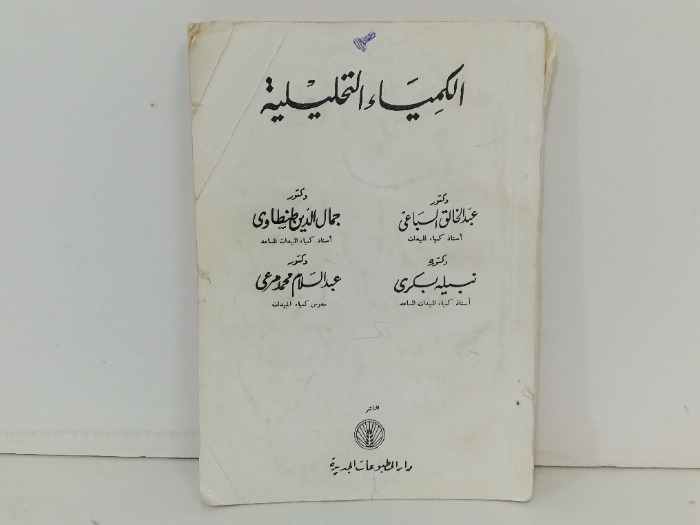 الكيمياء التحليلية
دكتور
عبد الخالق السباعى
أستاذ كيمياء المبيدات
دكتور
جمال الدين طنطاوى
أستاذ كيمياء المبيدات المساعد
دكتورة
نبيله بكرى
أستاذ كيمياء المبيدات المساعد
دكتور
عبد السلام محمد مرعى
مدرس كيمياء المبيدات
الناشر
دار المطبوعات الجديدة